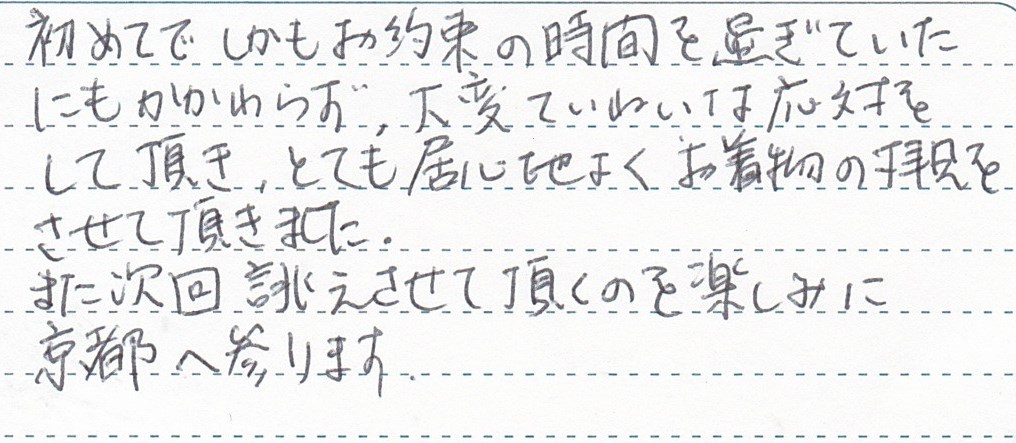 初めてでしかもお約束の時間を過ぎていた
にもかかわらず、大変ていねいな応対を
して頂き、とても居心地よくお着物の拝見を
させて頂きました。
また次回誂えさせて頂くのを楽しみに
京都へ参ります.